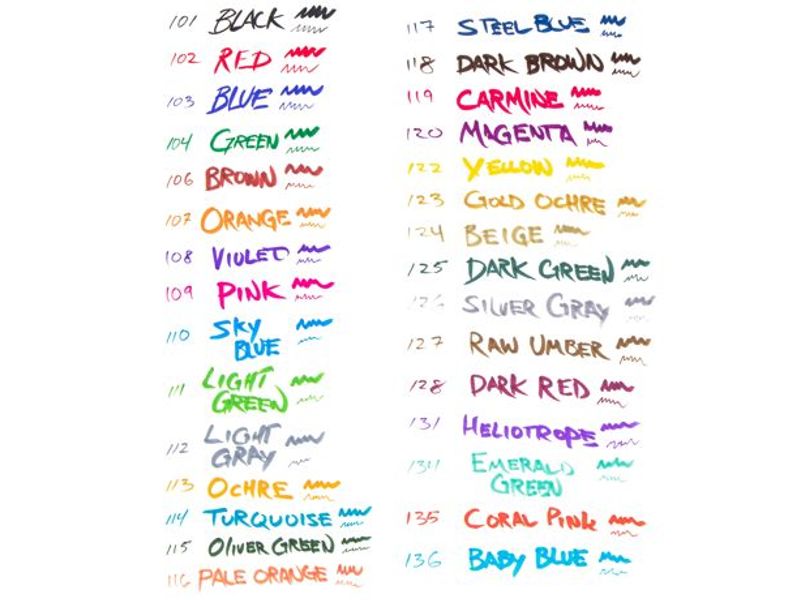 101 BLACK
102 RED
103 BLUE
104 GREEN
106 BROWN
107 ORANGE
108 VIOLET
109 PINK
110 SKY
BLUE
111 LIGHT
GREEN
112 LIGHT
GRAY
113 OCHRE
114 TURQUOISE
115 OLIVER GREEN
116 PALE ORANGE
117 STEEL BLUE
118 DARK BROWN
119 CARMINE
120 MAGENTA
122 YELLOW
123 GOLD OCHRE
124 BEIGE
125 DARK GREEN
126 SILVER GRAY
127 RAW UMBER
128 DARK RED
131 HELIOTROPE
134 EMERALD
GREEN
135 CORAL PINK
136 BABY BLUE